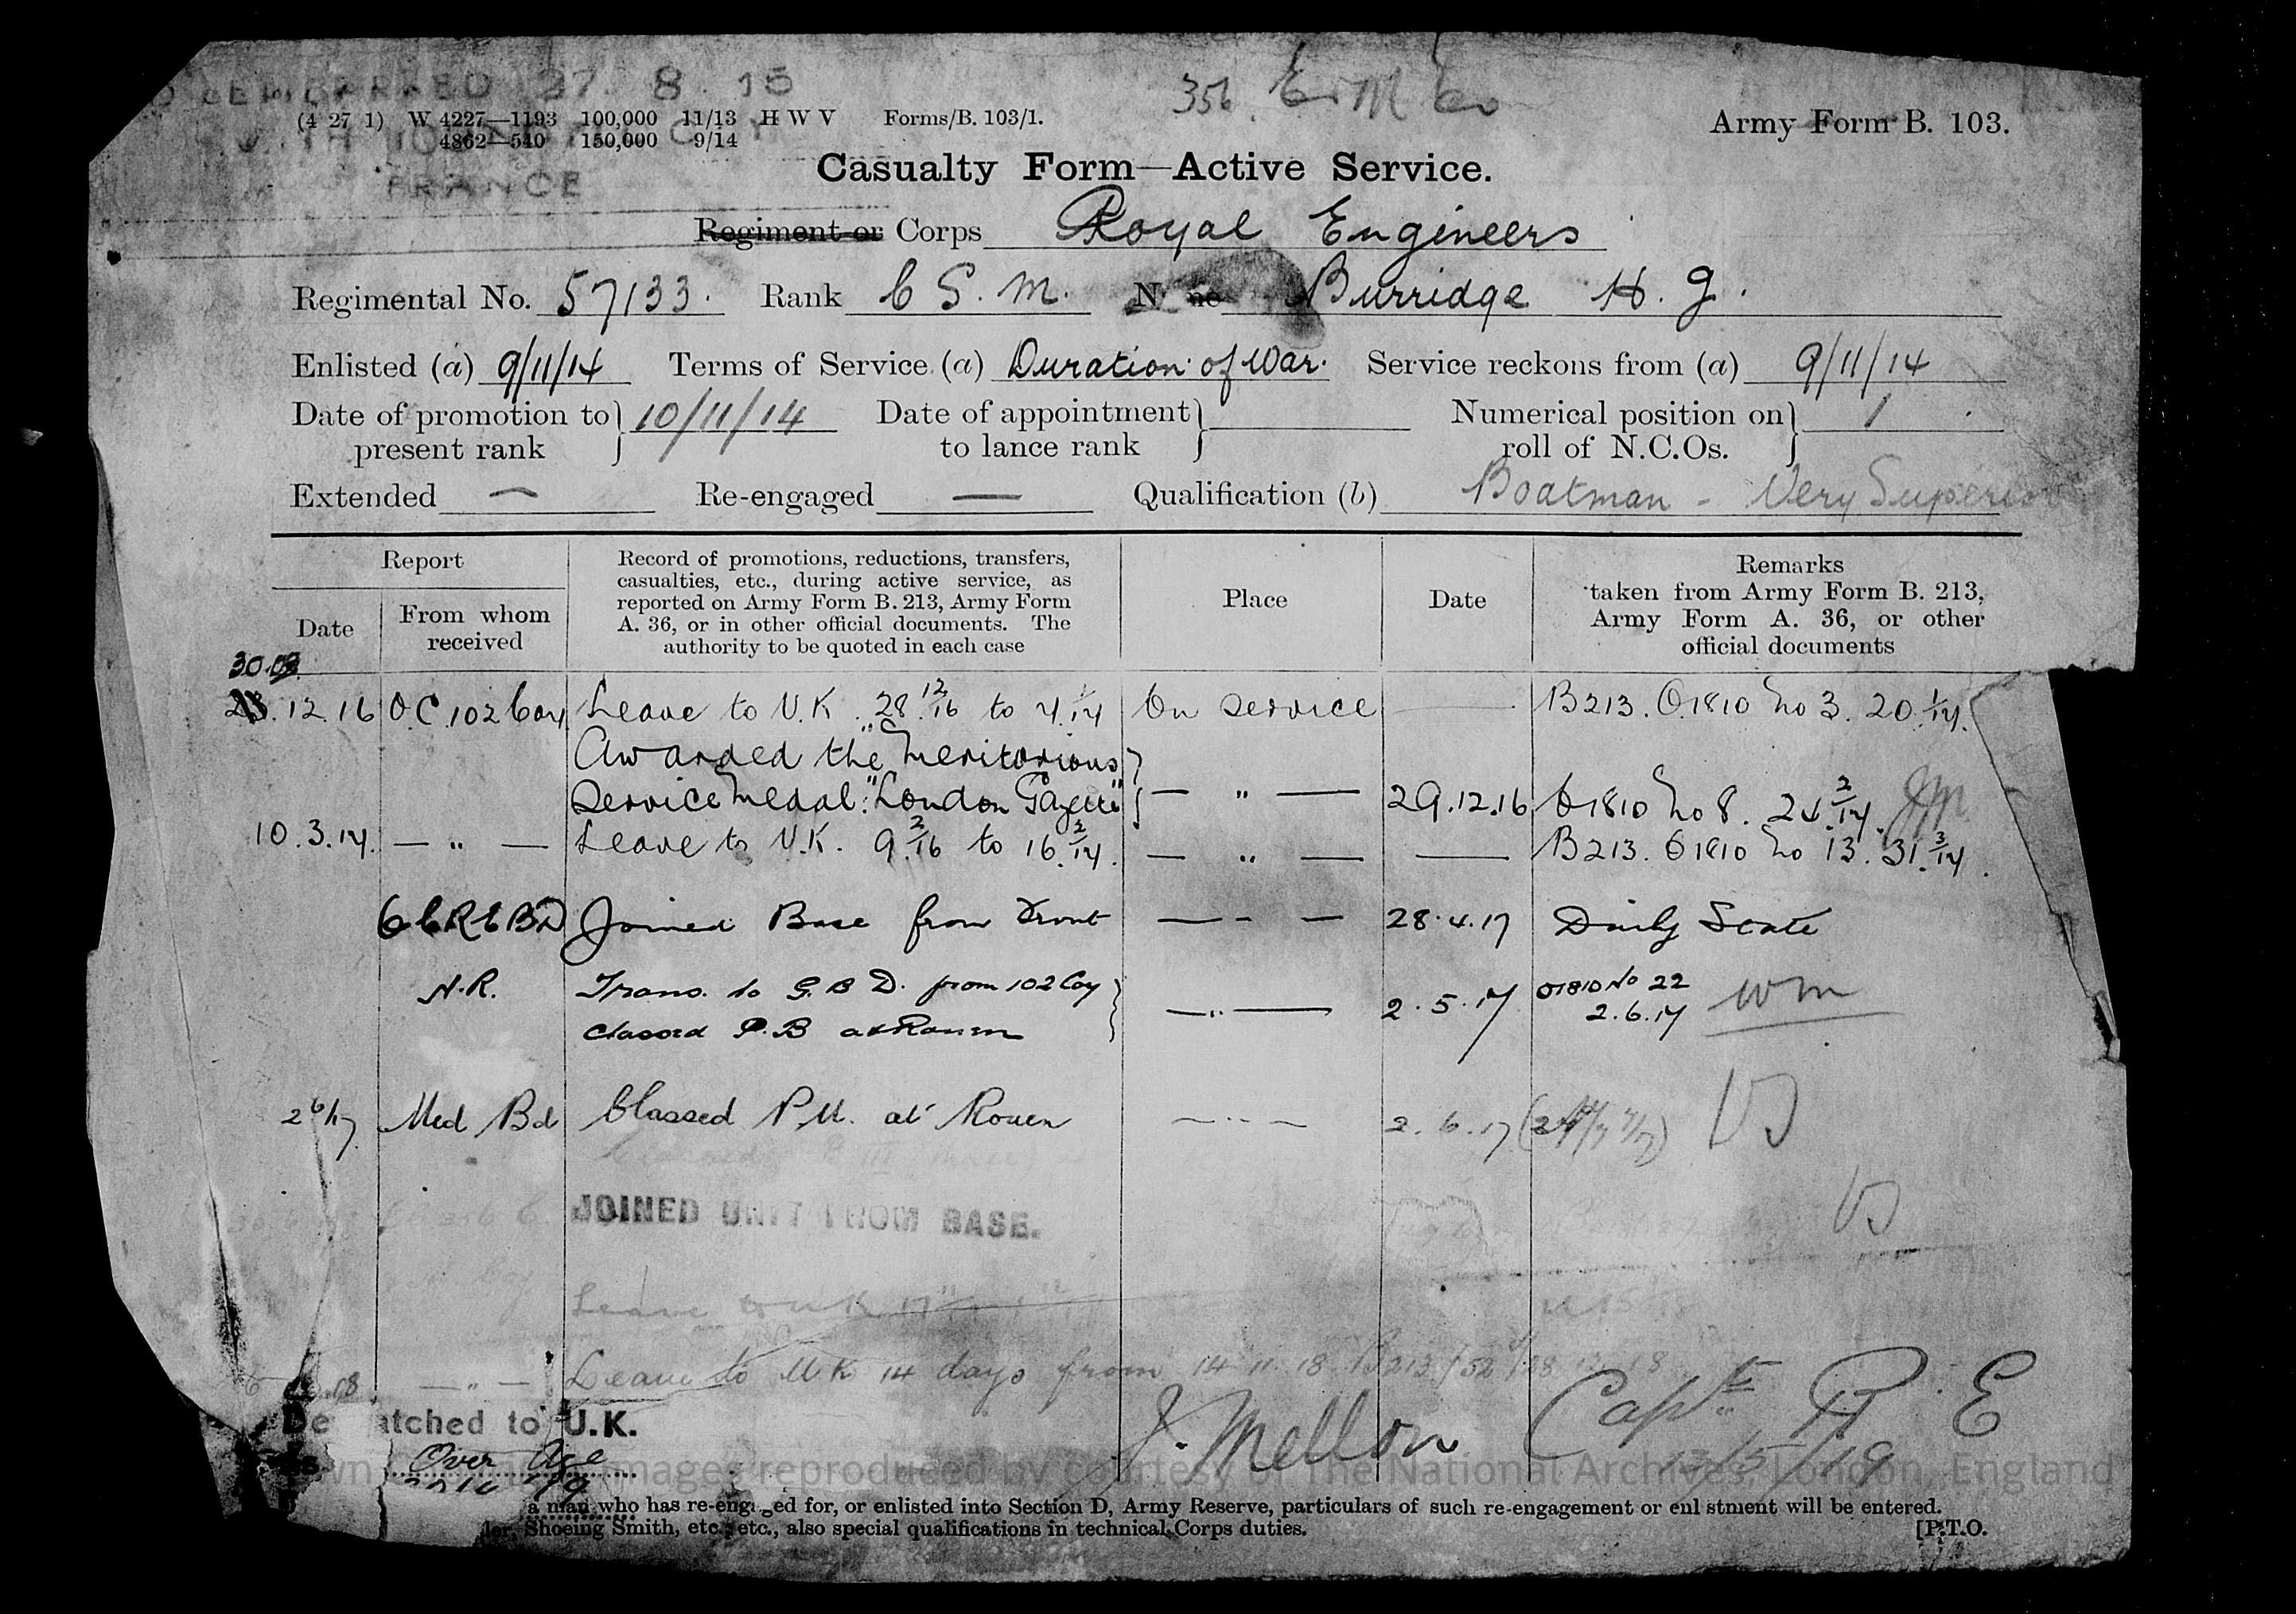 DISEMBARKED 27. 8. 15
356 E & M Co
(4 27 1) W 4227—1193 100,000 11/13 H W V Forms/B. 103/1.
4862—540 150,000 9/14
Army Form B. 103.
FRANCE
Casualty Form—Active Service.
Regiment or Corps Royal Engineers
Regimental No. 57133. Rank C S. M. Name Burridge H. G.
Enlisted (a) 9/11/14 Terms of Service (a) Duration of War. Service reckons from (a) 9/11/14
Date of promotion to present rank } 10/11/14 Date of appointment to lance rank } Numerical position on roll of N.C.Os. } 1
Extended — Re-engaged — Qualification (b) Boatman - Very Superior
Report
Date
From whom received
Record of promotions, reductions, transfers,
casualties, etc., during active service, as
reported on Army Form B. 213, Army Form
A. 36, or in other official documents. The
authority to be quoted in each case
Place
Date
Remarks
taken from Army Form B. 213,
Army Form A. 36, or other
official documents
30.12.16 OC 102 Coy Leave to U.K. 28.12/16 to 7.1/17 On Service — B213. O.1810 No 3. 20.1/17.
Awarded the "Meritorious
Service Medal." "London Gazette" — " — 29.12.16 O1810 No 8. 24.2/17.
10.3.17. — " — Leave to U.K. 9.2/16 to 16.2/17. — " — — B213. O1810 No 13. 31.3/17.
G C R E B D Joined Base from Front — - — 28.4.17 Daily State
A.R. Trans. to G. B D. from 102 Coy
Classed P.B at Rouen — " — 2.5.17 O1810 No 22
2.6.17 WM
2/6/17 Med Bd Classed P.U. at Rouen — " — 2.6.17
JOINED UNIT FROM BASE.
Leave to U K 17
— " — Leave to U K 14 days from 14 11 18 B213/52
J. Mellon Capt R. E
13/5/19
De atched to U.K.
Over Age
wn images reproduced by courtesy The National Archives, London, England
a man who has re-engaged for, or enlisted into Section D, Army Reserve, particulars of such re-engagement or enlistment will be entered.
ler, Shoeing Smith, etc., etc., also special qualifications in technical Corps duties.
[P.T.O.